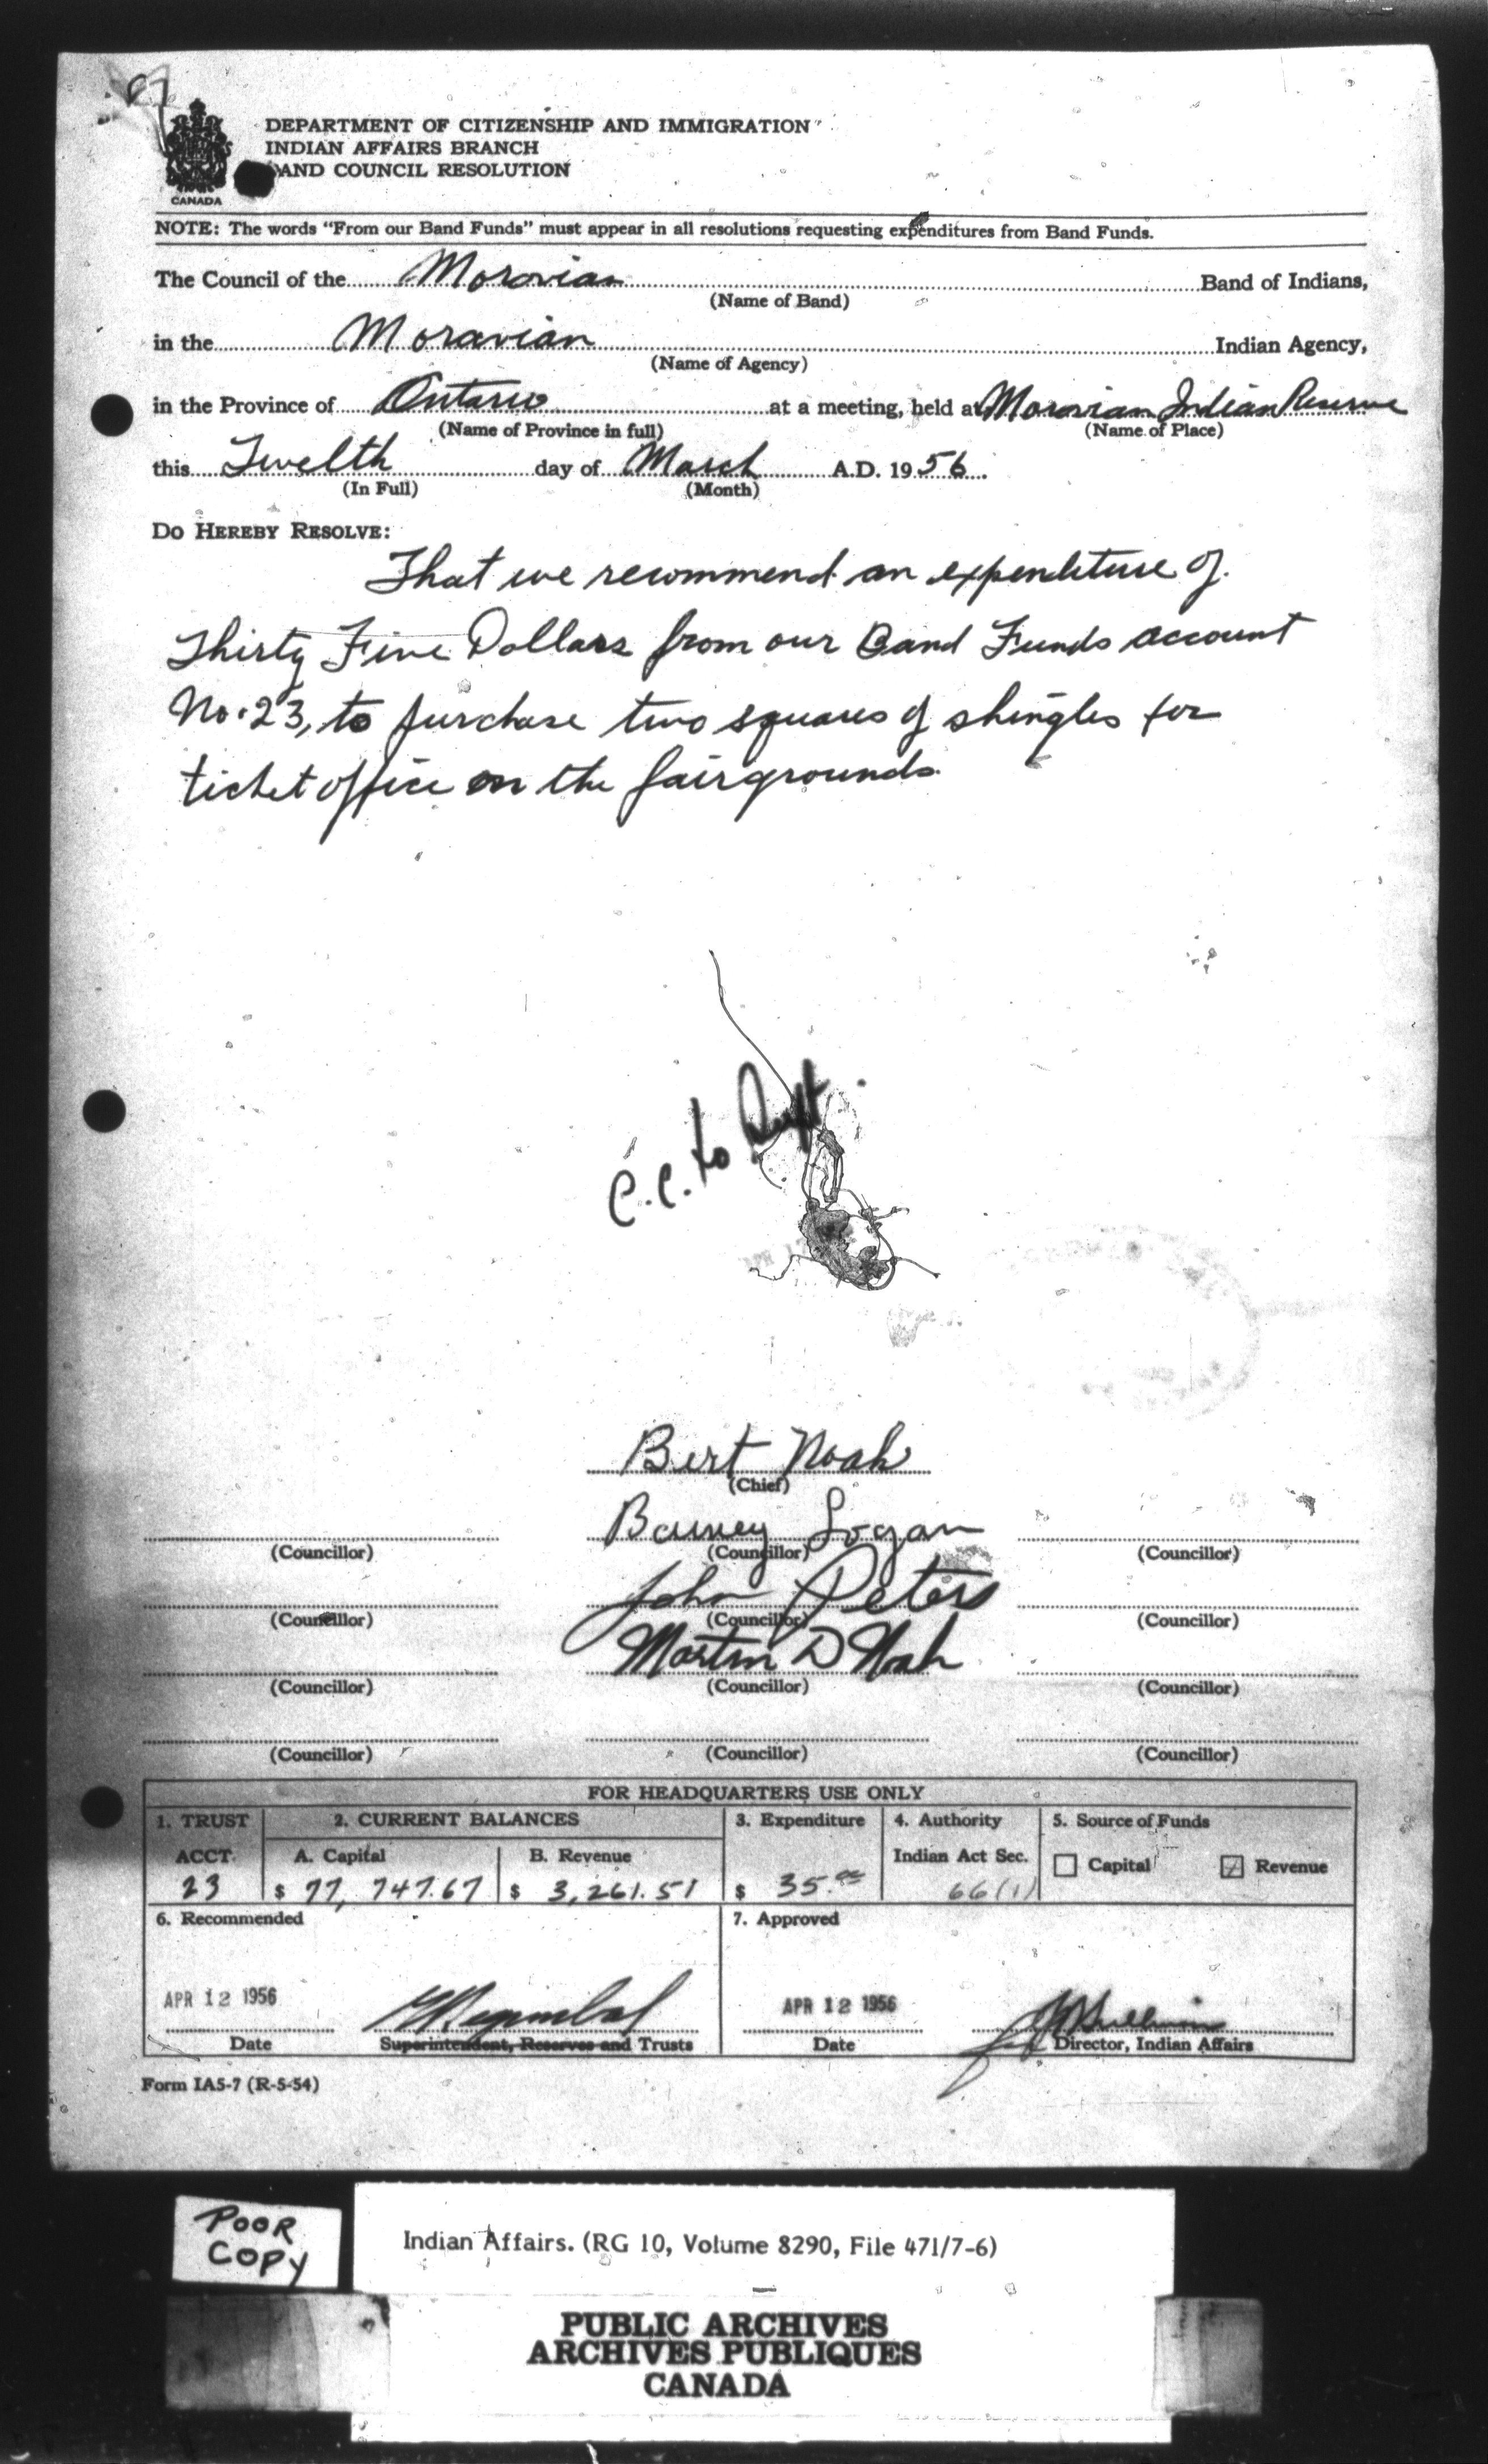 87
DEPARTMENT OF CITIZENSHIP AND IMMIGRATION
INDIAN AFFAIRS BRANCH
AND COUNCIL RESOLUTION
CANADA
NOTE: The words "From our Band Funds" must appear in all resolutions requesting expenditures from Band Funds.
The Council of the Moravian Band of Indians,
(Name of Band)
in the Moravian Indian Agency,
(Name of Agency)
in the Province of Ontario at a meeting, held at Moravian Indian Reserve
(Name of Province in full) (Name of Place)
this Twelth day of March A.D. 1956.
(In Full) (Month)
DO HEREBY RESOLVE:
That we recommend an expenditure of
Thirty Five Dollars from our Band Funds account
No. 23, to purchase two squares of shingles for
ticket office on the fairgrounds.
C.C. to Supt.
Bert Noah
(Chief)
Barney Logan
(Councillor) (Councillor) (Councillor)
John Peters
(Councillor) (Councillor) (Councillor)
Martin D Noah
(Councillor) (Councillor) (Councillor)
(Councillor) (Councillor) (Councillor)
FOR HEADQUARTERS USE ONLY
1. TRUST 2. CURRENT BALANCES 3. Expenditure 4. Authority 5. Source of Funds
ACCT. A. Capital B. Revenue Indian Act Sec. Capital Revenue
23 $ 77,747.67 $ 3,261.51 $ 35.00 66(1)
6. Recommended 7. Approved
APR 12 1956 APR 12 1956
Date Superintendent, Reserves and Trusts Date Director, Indian Affairs
Form IA5-7 (R-5-54)
POOR
COPY
Indian Affairs. (RG 10, Volume 8290, File 471/7-6)
PUBLIC ARCHIVES
ARCHIVES PUBLIQUES
CANADA